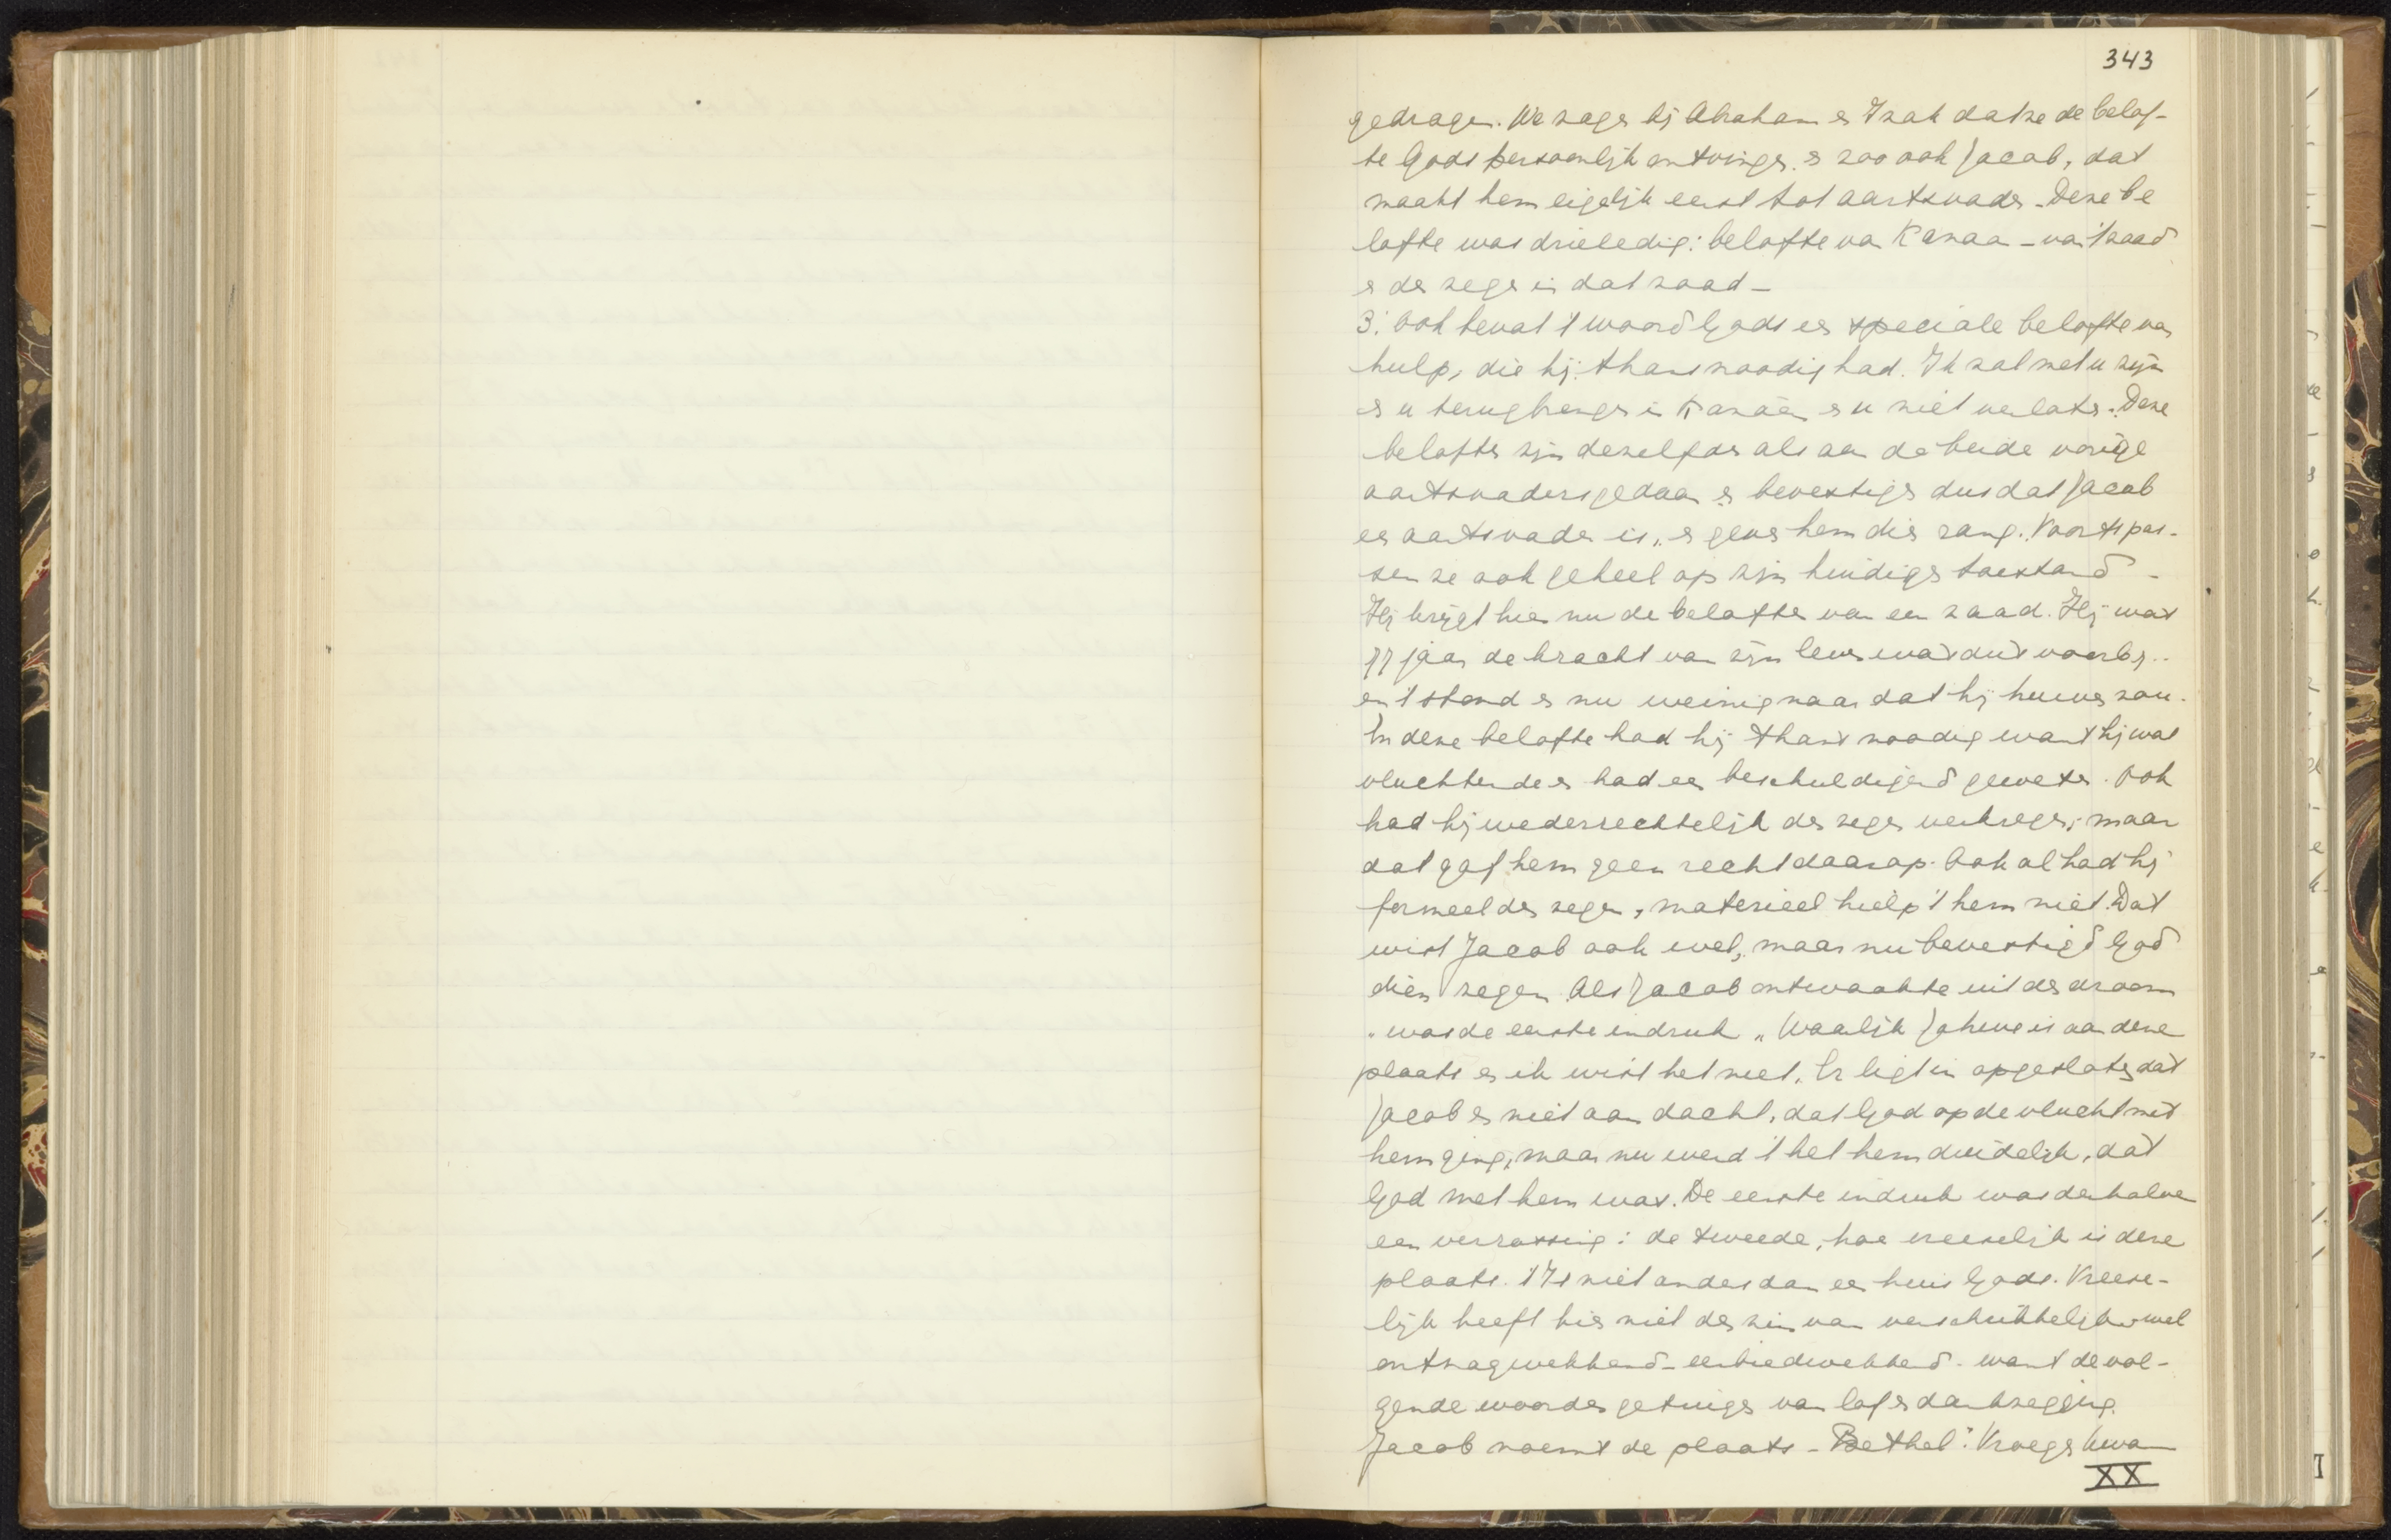 343
gedragen. We zagen bij Abraham en Izak dat ze de belof-
te Gods persoonlijk ontvingen. en zoo ook Jacob, dat
maakt hem eigelijk eerst tot aartsvader. Deze be
lofte was drieledig: belofte van Kanaa - van 't zaad
en den zegen in dat zaad -
3: Ook bevat 't woord Gods een speciale belofte van
hulp, die hij thans noodig had. Ik zal met u zijn
en u terugbrengen in Kanaän en u niet verlaten. Deze
beloften zijn dezelfde als aan de beide vorige
aartsvaders gedaan en bevestigen dus dat Jacob
een aartsvader is, en geven hem dien rang. Voorts pas-
sen ze ook geheel op zijn huidigen toestand -
Hij krijgt hier nu de belofte van een zaad. Hij was
77 jaar de kracht van zijn leven was dus voorbij..
en 't stond er nu weinig naar dat hij huwen zou.
En deze belofte had hij thans noodig want hij was
vluchtende en had een beschuldigend geweten. Ook
had hij wederrechtelijk den zegen verkregen, maar
dat gaf hem geen recht daarop. Ook al had hij
formeel den zegen, materieel hielp 't hem niet. Dat
wist Jacob ook wel, maar nu bevestigd God
dien zegen. Als Jacob ontwaakte uit den droom
was de eerste indruk „Waarlijk Jahwe is aan deze
plaats en ik wist het niet. Er ligt in opgesloten dat
Jacob er niet aan dacht, dat God op de vlucht met
hem ging, maar nu werd 't het hem duidelijk, dat
God met hem was. De eerste indruk was derhalve
een verrassing: de tweede, hoe vreeselijk is deze
plaats. 't Is niet anders dan een huis Gods. Vreese-
lijk heeft hier niet den zin van verschrikkelijk wel
ontzagwekkend - eerbiedwekkend - want de vol-
gende woorden getuigen van lof en dankzegging.
Jacob noemt de plaats - Bethel". Vroeger kwam
XX